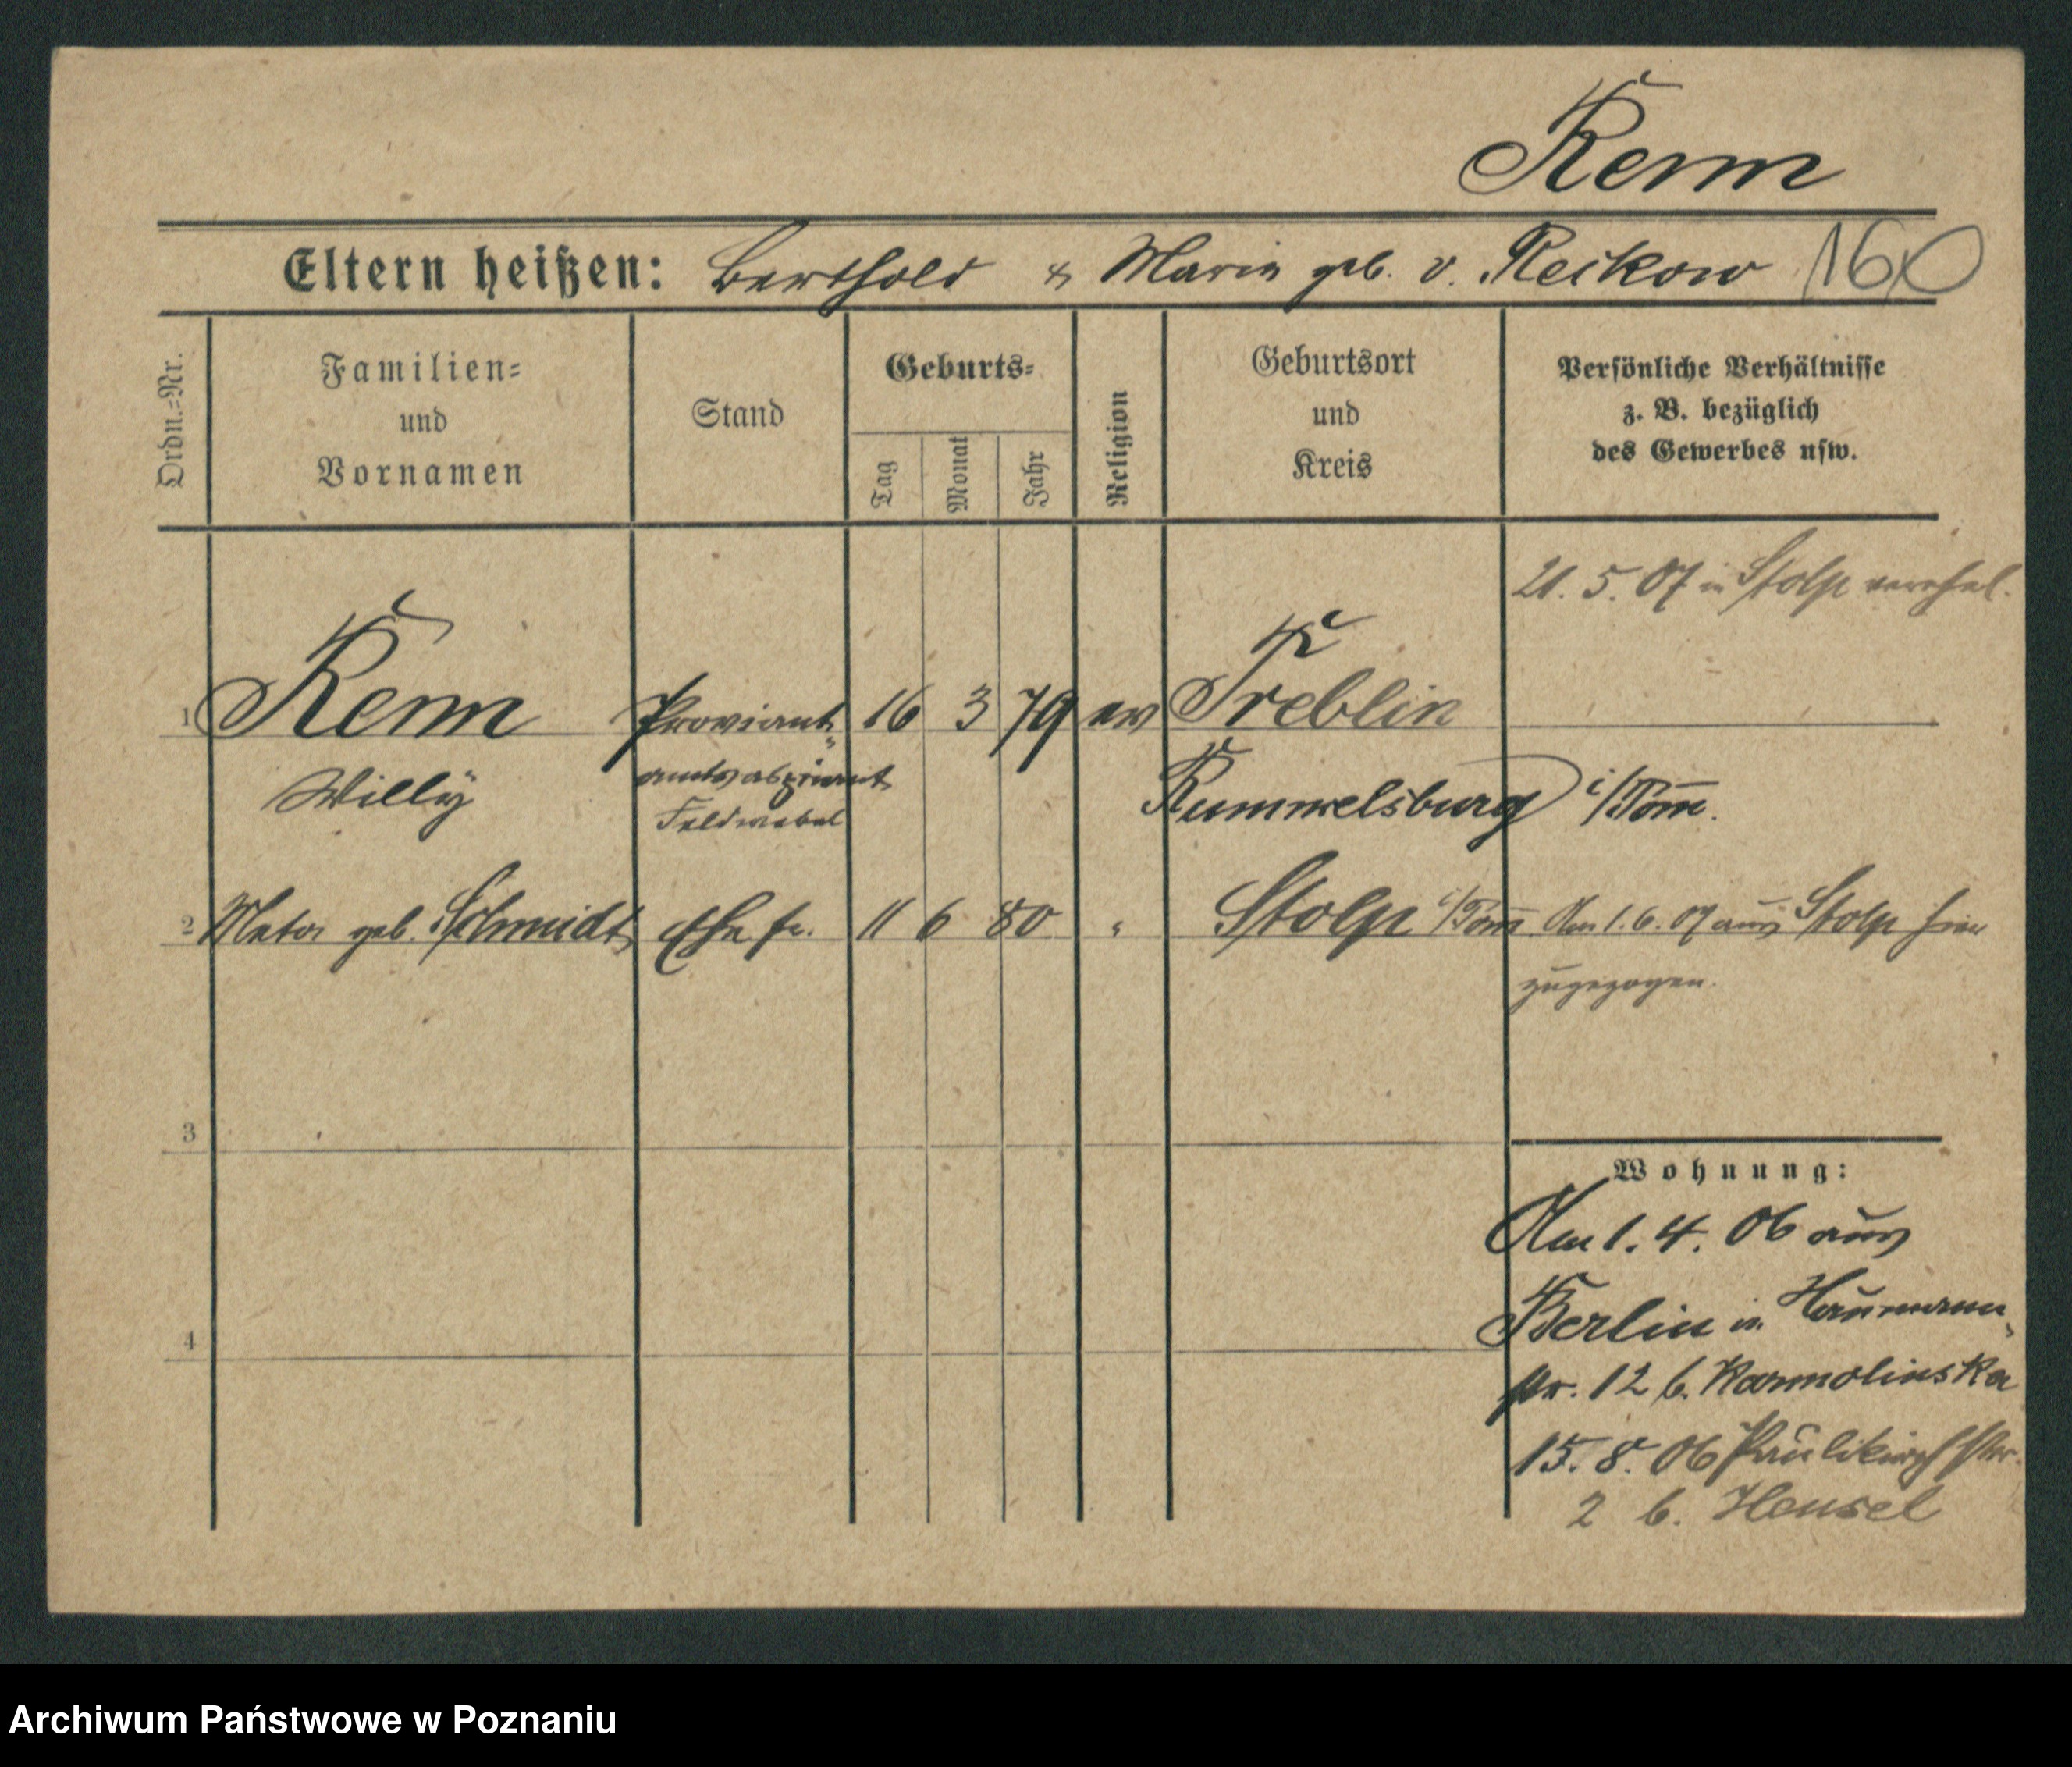 Remm
Eltern heißen: Berthold & Marie geb. v. Reikow 160
Ordn.=Nr.
Familien=
und
Vornamen
Stand
Geburts=
Tag
Monat
Jahr
Religion
Geburtsort
und
Kreis
Persönliche Verhältnisse
z. B. bezüglich
des Gewerbes usw.
21. 5. 07 in Stolp verehel.
1 Remm Proviant- 16 3 79 ev Treblin
Willy amtsaspirant Rummelsburg i/Pom.
Feldwebel
2 Meta geb. Schmidt Ehefr. 11 6 80 " Stolp i/Pom Am 1. 6. 07 aus Stolp hier
zugezogen.
3
Wohnung:
Am 1. 4. 06 aus
4 Berlin n. Naumann-
str. 12 b. Karmolinska
15. 8. 06 Paulikirchstr.
2 b. Hensel
Archiwum Państwowe w Poznaniu